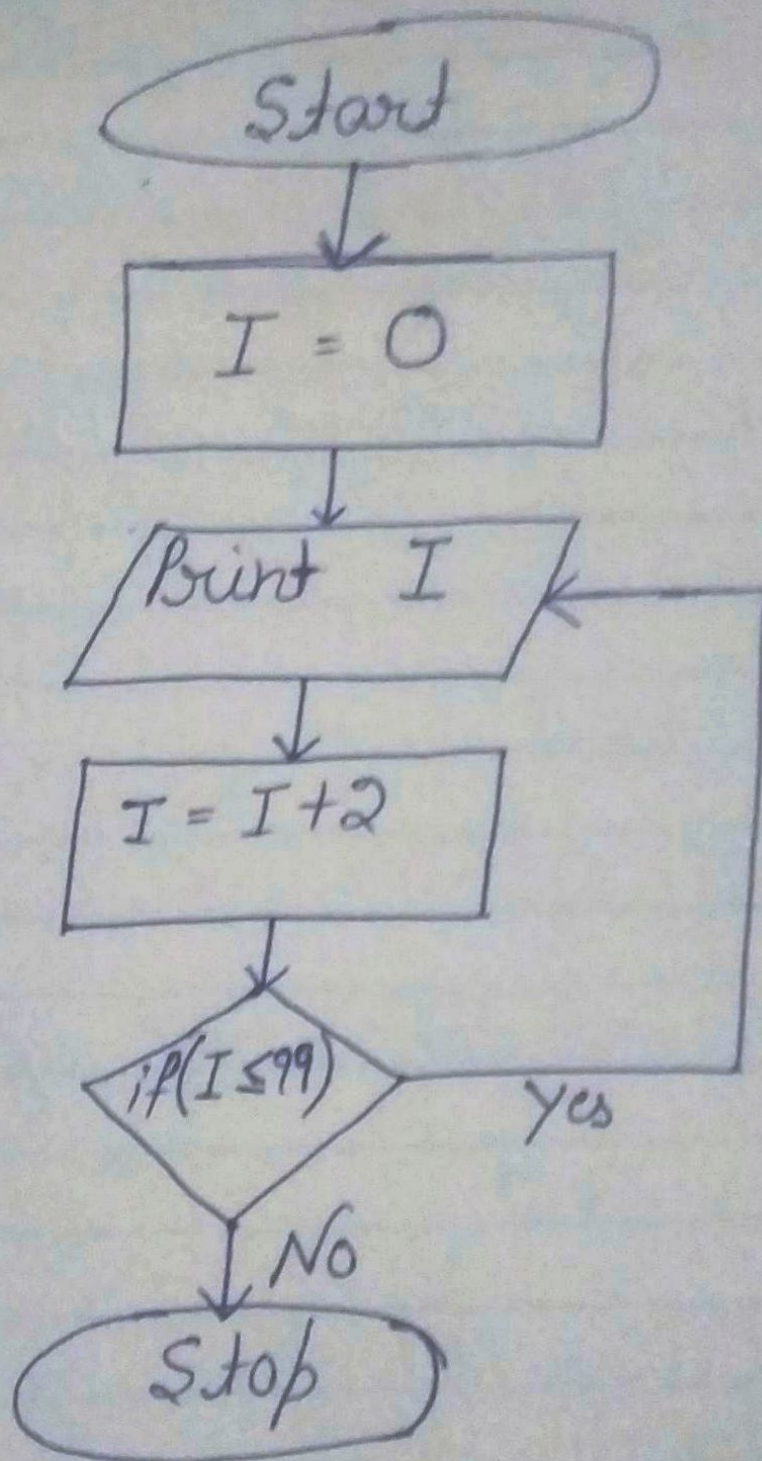 Start
I = 0
Print I
I = I+2
if(I ≤ 99)
Yes
No
Stop